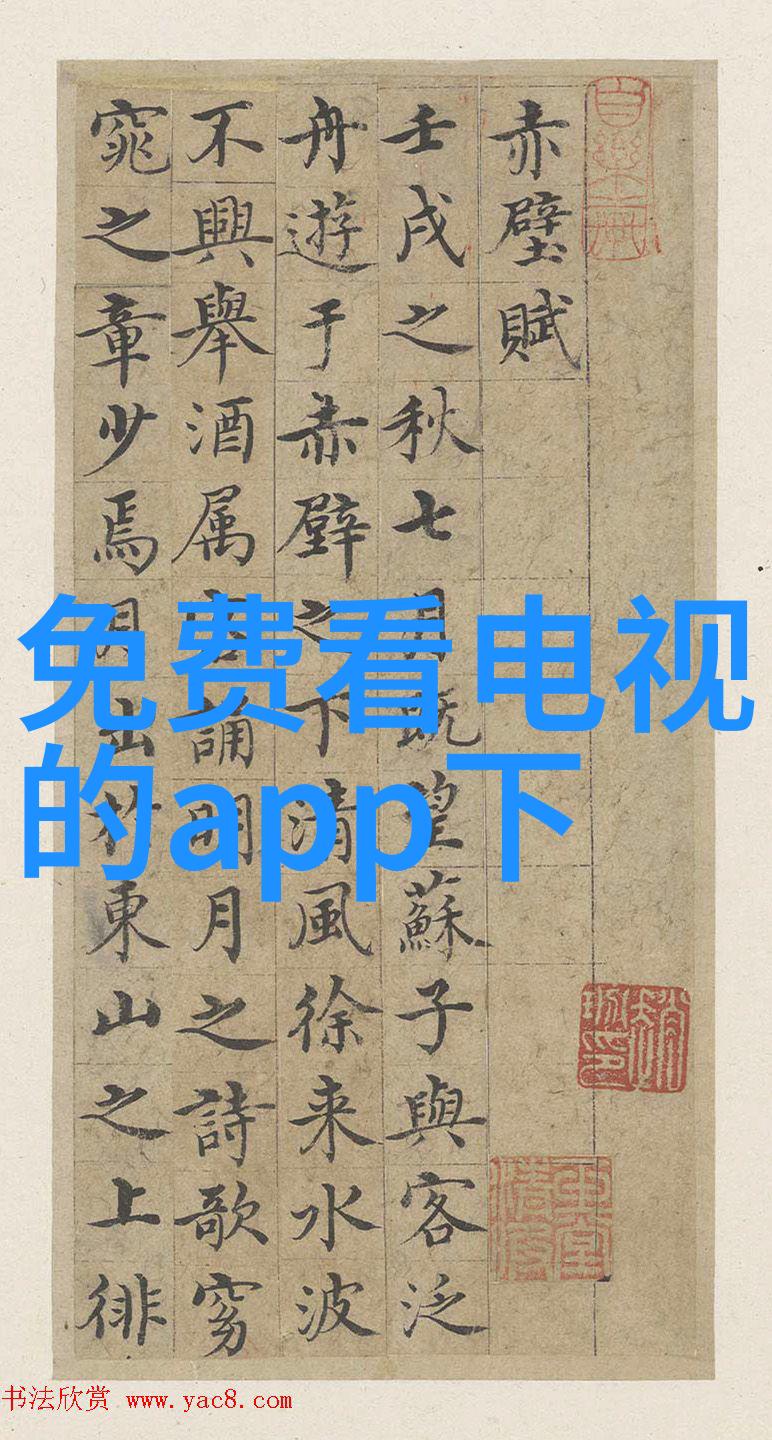 赤壁賦
壬戌之秋七月既望蘇子與客泛
舟遊于赤壁之下清風徐来水波
不興舉酒属客誦明月之詩歌窈
窕之章少焉月出於東山之上徘
免费看电视
的app下
书法欣赏 www.yac8.com